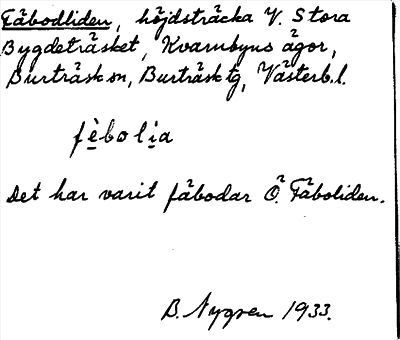 Fäbodliden, höjdsträcka V. Stora
Bygdeträsket, Kvarnbyns ägor,
Burträsk sn, Burträsk tg, Västerb.l.
fèbolịa
Det har varit fäbodar Ö. Fäboliden.
B. Nygren 1933.